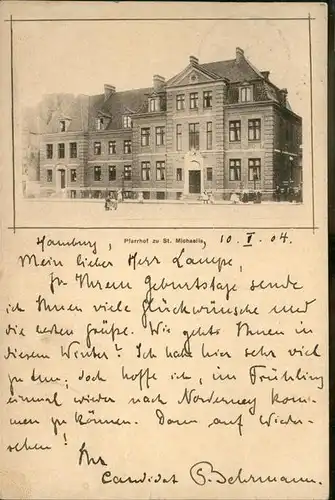 Pfarrhof zu St. Michaelis
Hamburg, 10. I. 04.
Mein lieber Herr Lampe,
Zu Ihrem Geburtstage sende
ich Ihnen viele Glückwünsche und
die besten Grüße. Wie gehts Ihnen in
diesem Winter? Ich habe hier sehr viel
zu tun; doch hoffe ich, im Frühling
einmal wieder nach Norderney kom-
men zu können. Dann auf Wieder-
sehen!
Ihr
Candidat P. Behrmann.